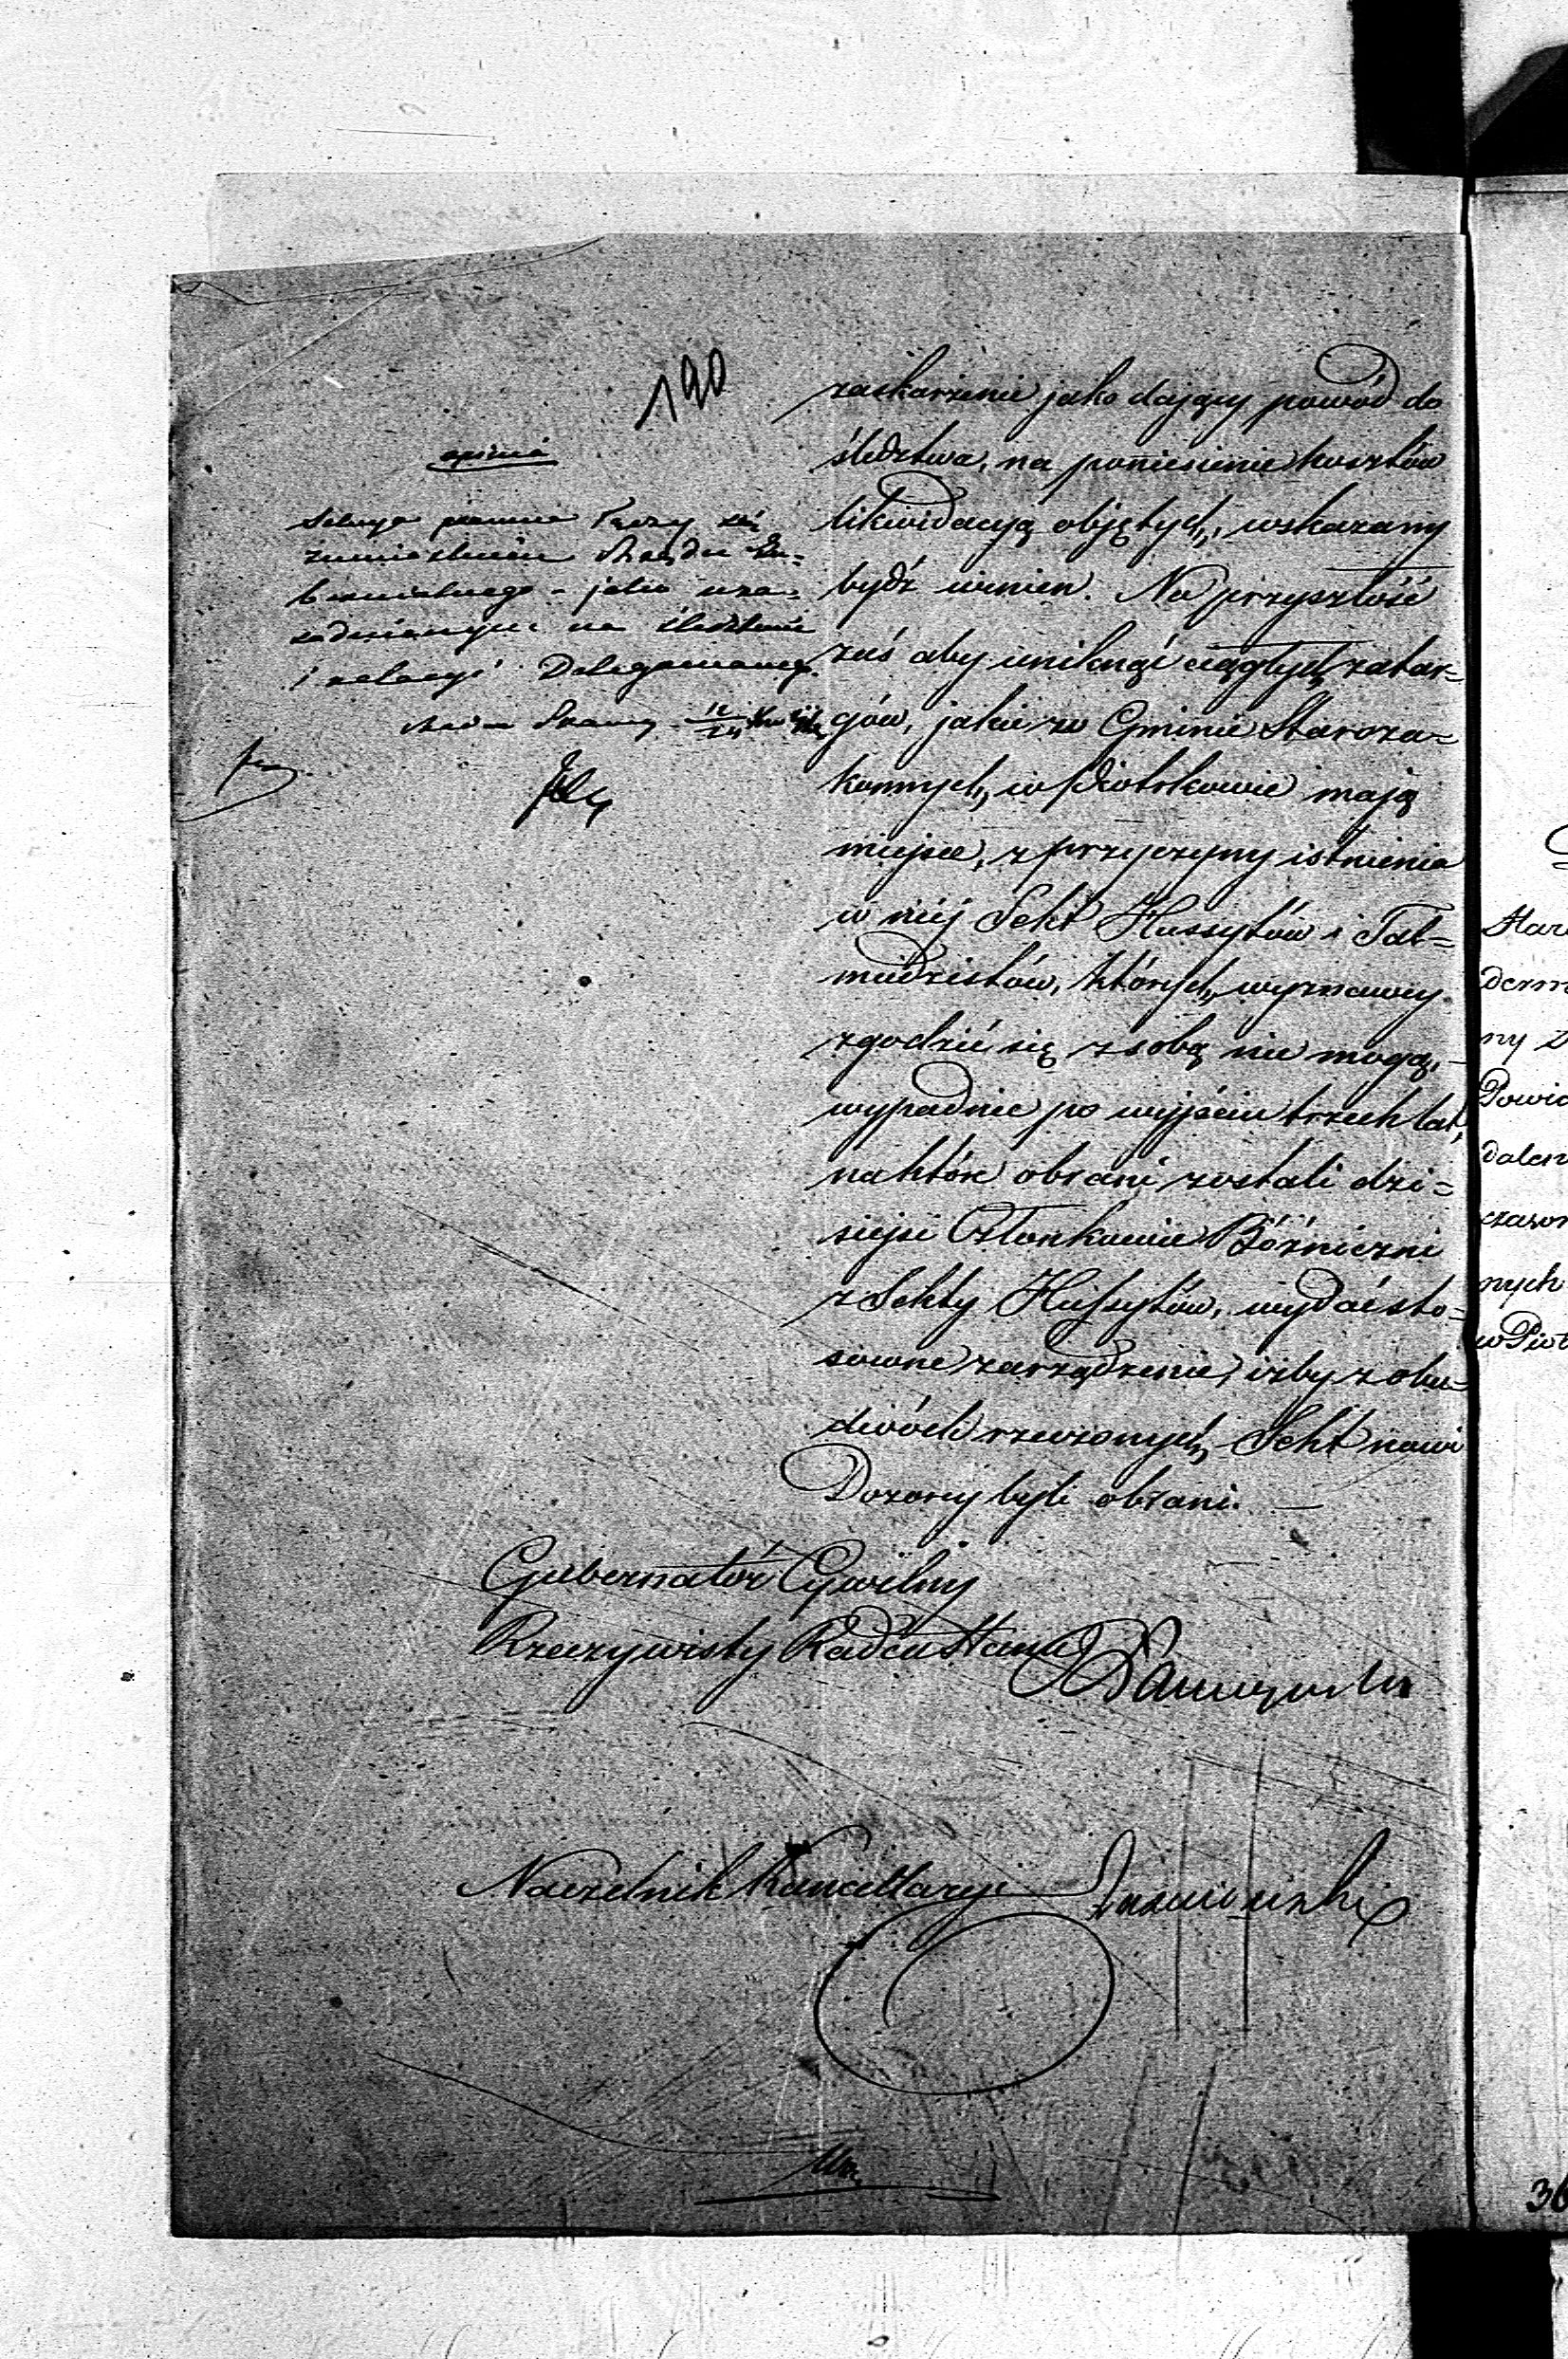 190
opinia
Sekcya prawna łączy się
zumieszczeniu Rządu Gu-
bernialnego - jako uza-
sadnionym na śledztwie
i relacyi Delegowanego.
12/24
zaskarżenie jako dający powód do
śledztwa, na poniesienie kosztów
likwidacyą objętych, wskazany
bydź winien. Na przyszłość
zaś aby uniknąć ciągłych zatar=
gów, jakie w Gminie Staroza=
konnych, w Piotrkowie mają
miejsce, z przyczyny istnienia
w niéj Sekt Hussytów i Tal=
mudzistów, których wyznawcy
zgodzić się z sobą nie mogą,
wypadnie po wyjściu trzech lat,
na które obrani zostali dzi=
siejsi Członkowie Bóźniczni
z Sekty Hussytów, wydać sto=
sowne zarządzenie, iżby z obu=
dwóch rzeczonych Sekt nowi
Dozorcy byli obrani. —
Gubernator Cywilny
Rzeczywisty Radca Stanu
Naczelnik Kancellaryi
Star
derm
ny
Powia
dalen
czason
nych
w Piot
36